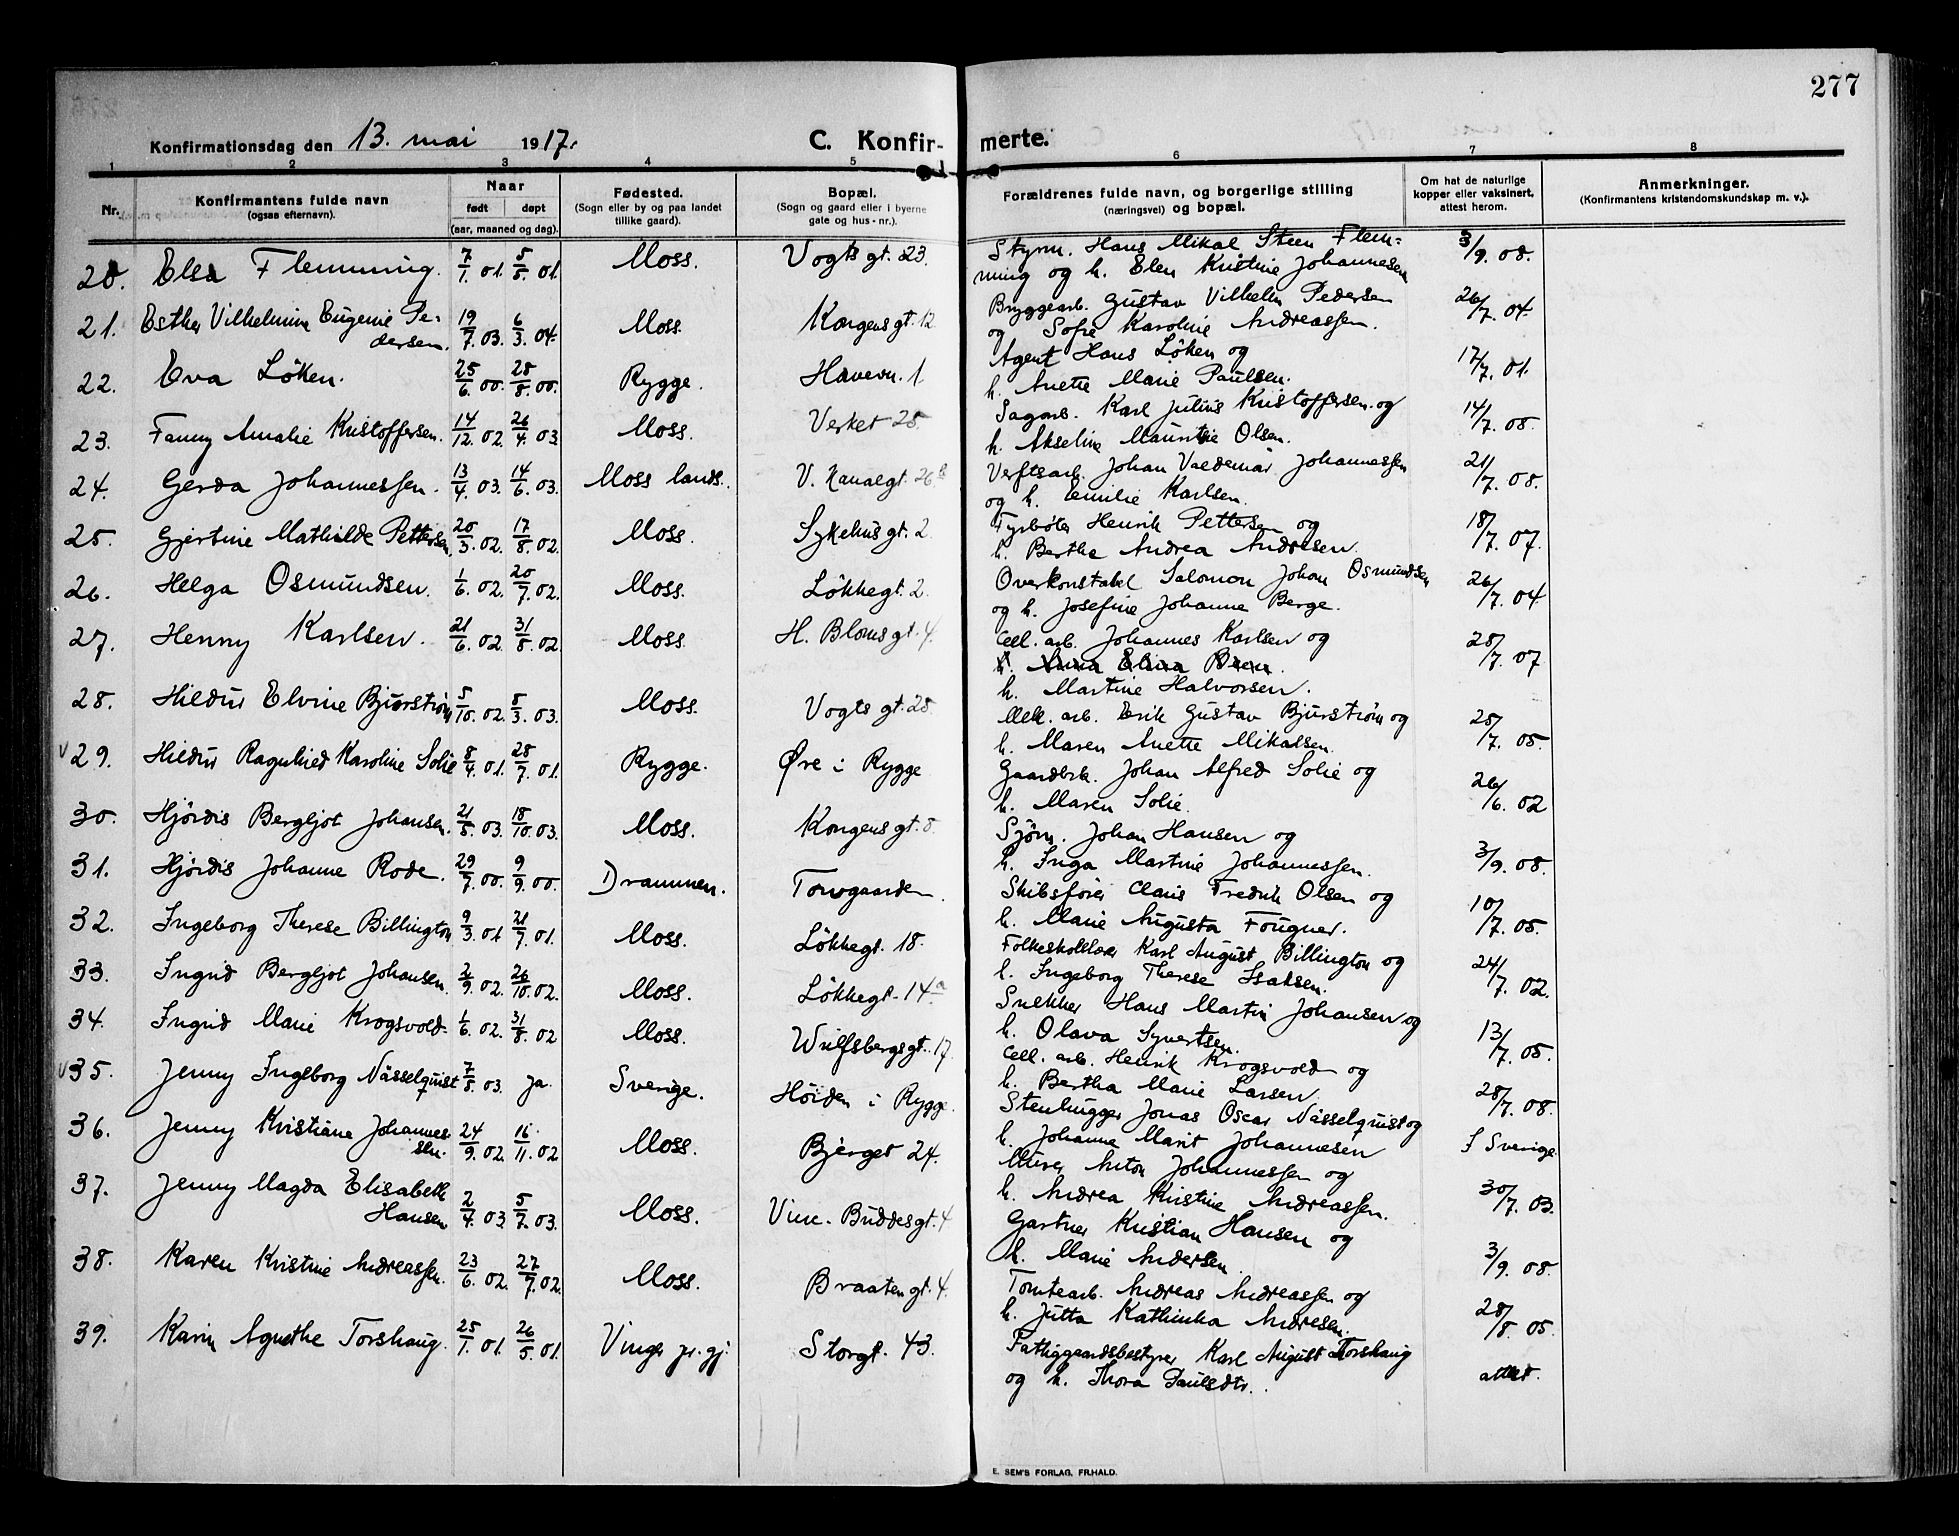 277
Konfirmationsdag den 13. mai 1917.
C. Konfirmerte.
1 2 3 4 5 6 7 8
Nr.
Konfirmantens fulde navn
(ogsaa efternavn).
Naar
født døpt
(aar, maaned og dag).
Fødested.
(Sogn eller by og paa landet
tillike gaard).
Bopæl.
(Sogn og gaard eller i byerne
gate og hus-nr.).
Forældrenes fulde navn, og borgerlige stilling
(næringsvei) og bopæl.
Om hat de naturlige
kopper eller vaksinert,
attest herom.
Anmerkninger.
(Konfirmantens kristendomskundskap m. v.).
20. Elsa Flemming. 7/1. 01. 5/5. 01. Moss. Vogts gt. 23. Styrm. Hans Mikal Steen Flem= 3/9. 08.
ming og h. Elen Kristine Johannesen
21. Esther Vilhelmine Eugenie Pe= 19/7. 03. 6/3. 04. Moss. Kongens gt. 12 Bryggearb. Gustav Vilhelm Pedersen 26/7. 04.
dersen. og Sofie Karoline Andreassen.
22. Eva Löken. 25/6. 00. 28/8. 00. Rygge. Havevn. 1. Agent Hans Löken og 17/7. 01.
h. Anette Marie Paulsen.
23. Fanny Amalie Kristoffersen. 14/12. 02. 26/4. 03. Moss. Verket 25. Sagarb. Karl Julius Kristoffersen og 14/7. 08.
h. Akseline Mauritie Olsen.
24. Gerda Johannessen. 13/4. 03. 14/6. 03. Moss lands. V. Kanalgt. 26 b Verftsarb. Johan Valdemar Johannessen 21/7. 08.
og h. Emilie Karlsen.
25. Gjertine Mathilde Pettersen 20/3. 02. 17/8. 02. Moss. Sykehusgt. 2. Fyrböter Henrik Pettersen og 18/7. 07.
h. Berthe Andrea Andresen.
26. Helga Osmundsen. 1/6. 02. 20/7. 02. Moss. Lökkegt. 2. Overkonstabel Salomon Johan Osmundsen 26/7. 04.
og h. Josefine Johanne Berge.
27. Henny Karlsen. 21/6. 02. 31/8. 02. Moss. H. Bloms gt. 4. Cell. arb. Johannes Karlsen og 28/7. 07
h. Anna Elina
h. Martine Halvorsen.
28. Hildur Elvine Bjurström 5/10. 02. 8/3. 03. Moss. Vogts gt. 28. Mek. arb. Erik Gustav Bjurström og 28/7. 05.
h. Maren Anette Mikalsen.
v 29. Hildur Ragnhild Karoline Solie 8/4. 01. 28/7. 01. Rygge. Øre i Rygge Gaardbr. Johan Alfred Solie og 26/6. 02
h. Maren Solie.
30. Hjördis Bergljot Johansen. 21/8. 03. 18/10. 03. Moss. Kongens gt. 8. Sjöm. Johan Hansen og 3/9. 08.
h. Inga Martine Johannessen.
31. Hjördis Johanne Rode. 29/7. 00. 9/9. 00. Drammen. Torvgaarden. Skibsförer Claus Fredrik Olsen og 10/7. 05.
h. Marie Augusta Fougner.
32. Ingeborg Therese Billington 9/3. 01 21/7. 01. Moss. Lökkegt. 18. Folkeskolelær Karl August Billington og 24/7. 02.
h. Ingeborg Therese Isaksen.
33. Ingrid Bergljot Johansen. 2/9. 02. 26/10. 02. Moss. Lökkegt. 14 a Snekker Hans Martin Johansen og 13/7. 05.
h. Olava Syvertsen.
34. Ingrid Marie Krogsvold. 1/6. 02. 31/8. 02 Moss. Wulfsbergsgt. 17. Cell. arb. Henrik Krogsvold og 28/7. 08.
h. Bertha Marie Larsen.
v 35. Jenny Ingeborg Nässelquist 7/8. 03. ja. Sverige. Höiden i Rygge. Stenhugger Jonas Oscar Nässelquist og I Sverige
h. Johanne Marit Johannesen
36. Jenny Kristiane Johannes 24/9. 02. 16/11. 02 Moss. Bjerget 24. Murer Anton Johannessen og 30/7. 03.
sen. h. Andrea Kristine Andreassen.
37. Jenny Magda Elisabeth 2/4. 03 5/7. 03. Moss. Vinc. Buddesgt. 4 Gartner Kristian Hansen og 3/9. 08.
Hansen h. Marie Andersen.
38. Karen Kristine Andreassen. 23/6. 02. 27/7. 02. Moss. Braatengt. 4. Tomtearb. Andreas Andreassen og 28/8. 05.
h. Jutta Kathinka Andresen.
39. Karin Agnethe Torshaug. 25/1. 01. 26/5. 01. Vinger pr.gj. Storgt. 43. Fattiggaardsbestyrer Karl August Torshaug attest.
og h. Thora Paulsdtr.
E. SEM'S FORLAG, FR.HALD.